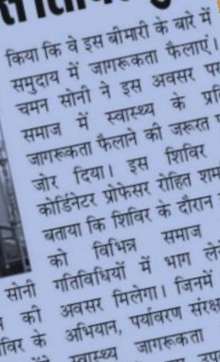 किया कि वे इस बीमारी के बारे में
समुदाय में जागरूकता फैलाएं।
चमन सोनी ने इस अवसर पर
समाज में स्वास्थ्य के प्रति
जागरूकता फैलाने की जरूरत प
जोर दिया। इस शिविर
कोर्डिनेटर प्रोफेसर रोहित शम
बताया कि शिविर के दौरान
को विभिन्न समाज
सोनी गतिविधियों में भाग लेने
की अवसर मिलेगा। जिनमें
विर के अभियान, पर्यावरण संरक्ष
स्वास्थ्य जागरूकता